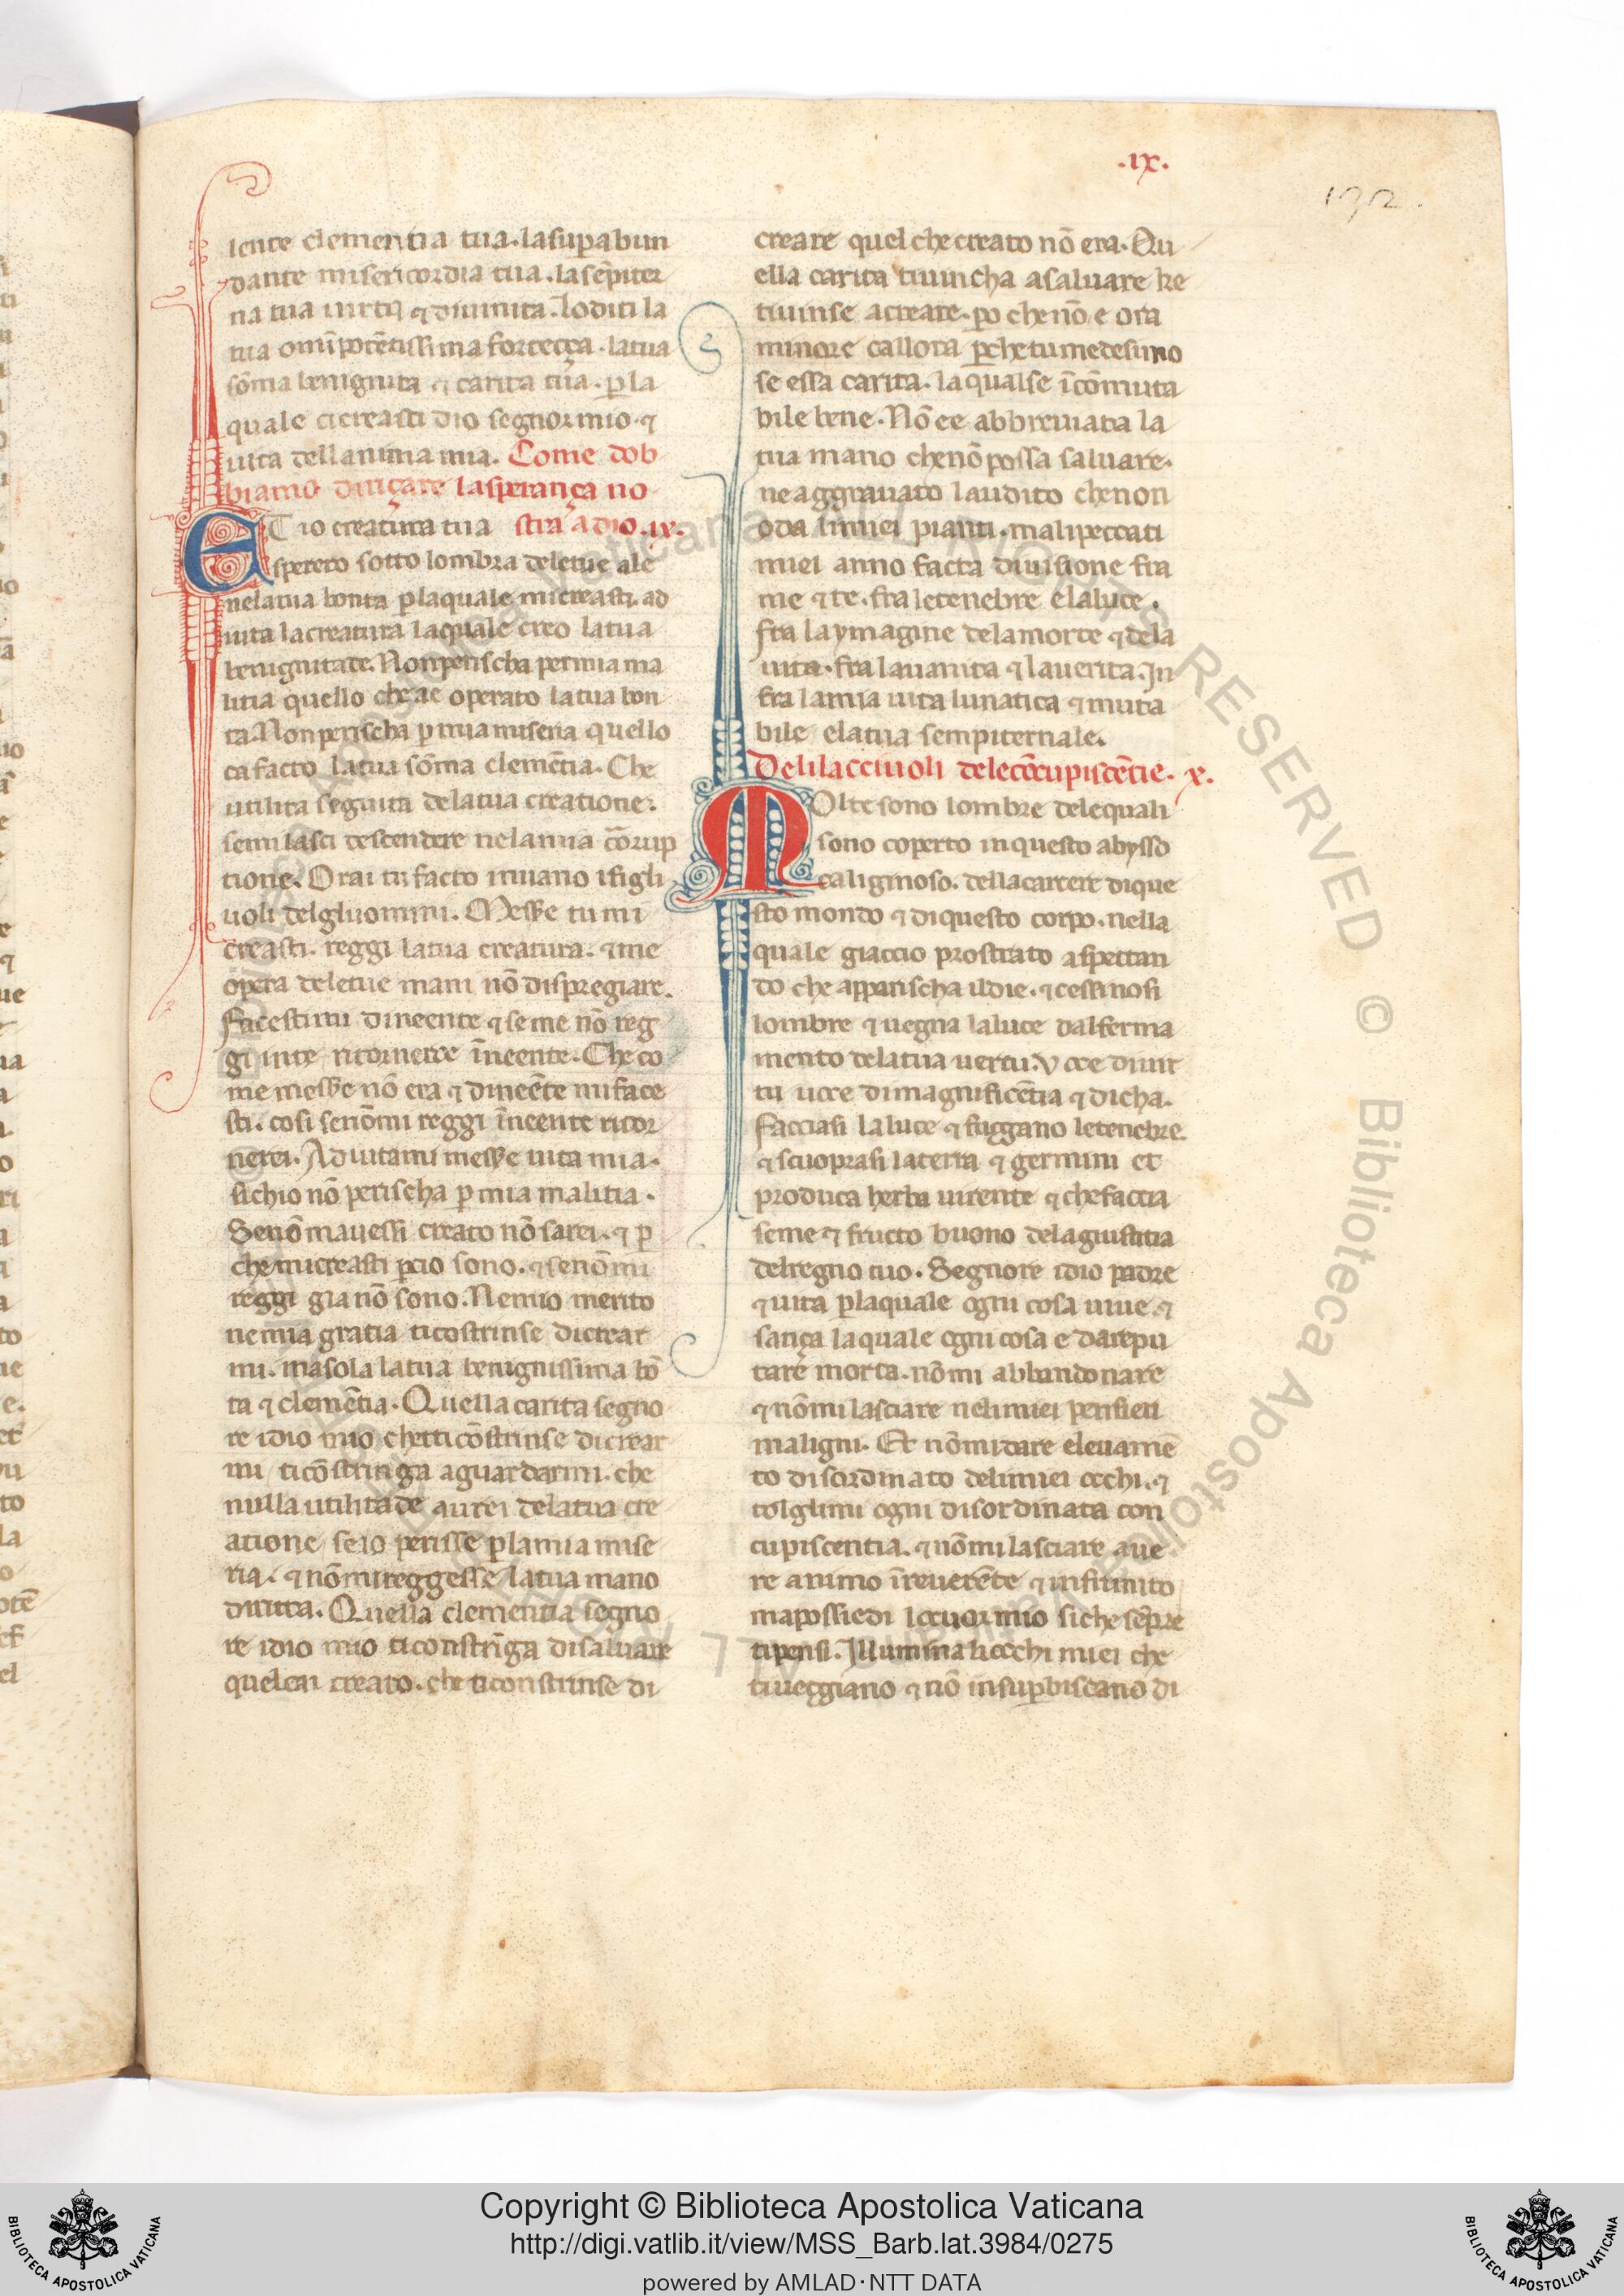 .ix.
132.
lente clementia tua. la supabun
dante misericordia tua. la sēpiter
na tua uirtu ⁊ diuinita. Loditi la
tua omīpotētissima forteçça. la tua
sōma benignita ⁊ carita tua. p la
quale ci creasti dio segnor mio. ⁊
uita dell anima mia. Come dob
biamo diriçare la sperança no
ET io creatura tua stra a dio. ix.
sperero sotto lombra dele tue ale
nela tua bonta p laquale mi creasti. ad
iuta la creatura laquale creo la tua
benignitade. Non perischa per mia ma
litia quello che ae operato la tua bon
ta. Non perischa p mia miseria quello
ca facto la tua sōma clemētia. Che
utilita seguita dela tua creatione.
semi lasci descendere nela mia cōrup
tione. Or ai tu facto inuano i figli
uoli delgluomini. Messe tu mi
creasti. reggi la tua creatura. ⁊ me
opera dele tue mani nō dispregiare.
Facestimi di neente ⁊ se me nō reg
gi inte ritornerce īneente. Che co
me messe nō era ⁊ di neēte mi face
sti. cosi se nōmi reggi īneente ritor
nerei. Adiutami messe uita mia.
sichio nō perischa p mia malitia.
Se nō mauessi creato nō sarei. ⁊ p
che mi creasti pcio sono. ⁊ se nō mi
reggi gia nō sono. Ne mio merito
ne mia gratia ti costrinse di crear
mi. ma sola la tua benignissima bō
ta ⁊ clemētia. Quella carita segno
re idio mio chetti cōstrinse di crear
mi ti cōstringa a guardarmi. che
nulla utilitade aurei dela tua cre
atione se io perisse p la mia mise
ria. ⁊ nō mi reggesse la tua mano
diritta. Quella clementia segno
re idio mio ti constrīga di saluare
quel cai creato. che ti constrinse di
creare quel che creato nō era. Qu
ella carita ti uincha a saluare ke
ti uinse a creare. po che nō e ora
minore callora pche tu medesimo
se essa carita. la qual se īcōmuta
bile bene. Nō ee abbreuiata la
tua mano che nō possa saluare.
ne aggrauato laudito che non
oda li miei pianti. ma li peccati
miei anno facta diuisione fra
me ⁊ te. fra le tenebre e la luce.
fra la ymagine dela morte ⁊ dela
uita. fra la uanita ⁊ la uerita. In
fra la mia uita lunatica ⁊ muta
bile e la tua sempiternale.
Deli lacciuoli dele cōcupiscētie. x.
MOlte sono lombre dele quali
sono coperto in questo abysso
caliginoso. della carcere di que
sto mondo ⁊ di questo corpo. nella
quale giaccio prostrato aspettan
do che apparischa il die. ⁊ cessinosi
lombre ⁊ uegna la luce dal ferma
mento dela tua uertu. Voce diuir
tu uoce di magnificētia ⁊ dicha.
Facciasi la luce ⁊ fuggano le tenebre.
⁊ scuoprasi la terra ⁊ germini et
produca herba uirente ⁊ che faccia
seme ⁊ fructo buono dela giustitia
del regno tuo. Segnore idio padre
⁊ uita p laquale ogni cosa uiue. ⁊
sança la quale ogni cosa e da repu
tare morta. nō mi abbandonare
⁊ nō mi lasciare neli miei pensieri
maligni. Et nō mi dare eleuamē
to disordinato deli miei occhi. ⁊
tolglimi ogni disordinata con
cupiscentia. ⁊ nō mi lasciare aue
re animo īreuerēte ⁊ infrunito
ma possiedi lo cuor mio siche sēpre
ti pensi. Illumina li occhi miei che
ti ueggiano ⁊ nō insupbiscano di
Copyright © Biblioteca Apostolica Vaticana
http://digi.vatlib.it/view/MSS_Barb.lat.3984/0275
powered by AMLAD·NTT DATA
BIBLIOTECA APOSTOLICA VATICANA
BIBLIOTECA APOSTOLICA VATICANA